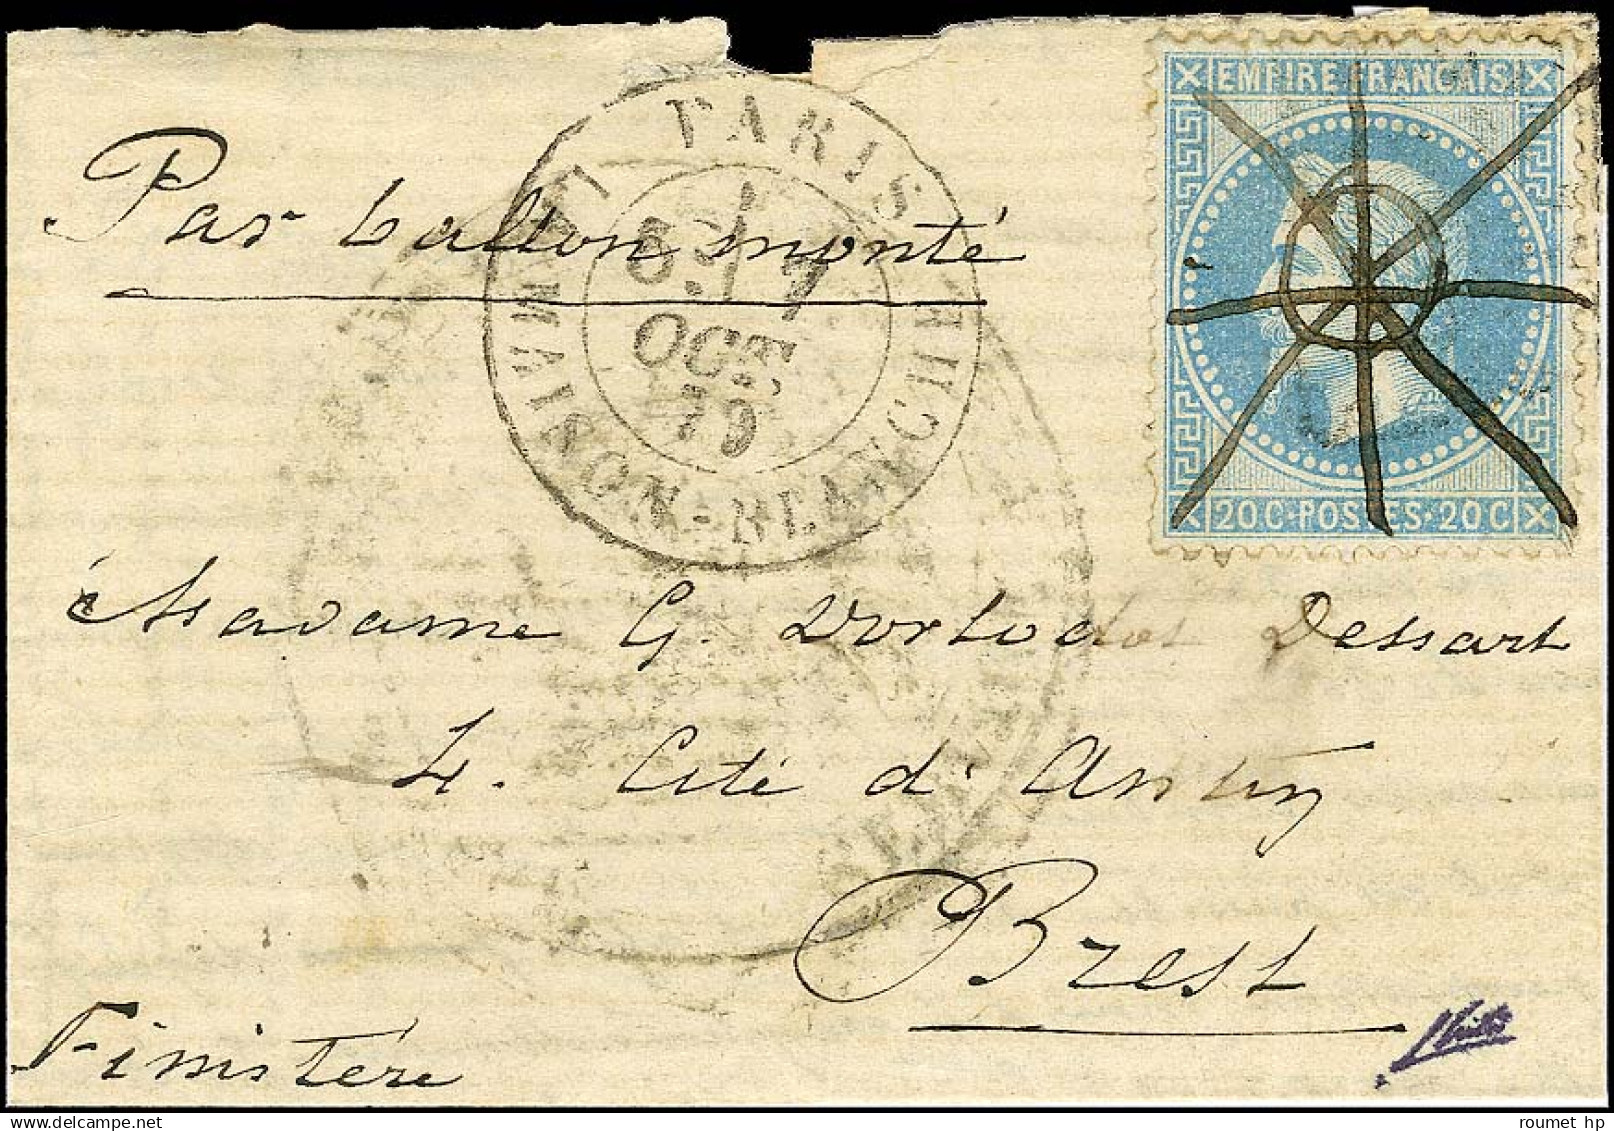 EMPIRE FRANÇAIS
PARIS
LA MAISON-BLANCHE
7
OCT
70
Par ballon monté
20 C·POSTES·20 C
Madame G. Dessart
4. Cité d'Antin
Brest
Finistère
roumet hp